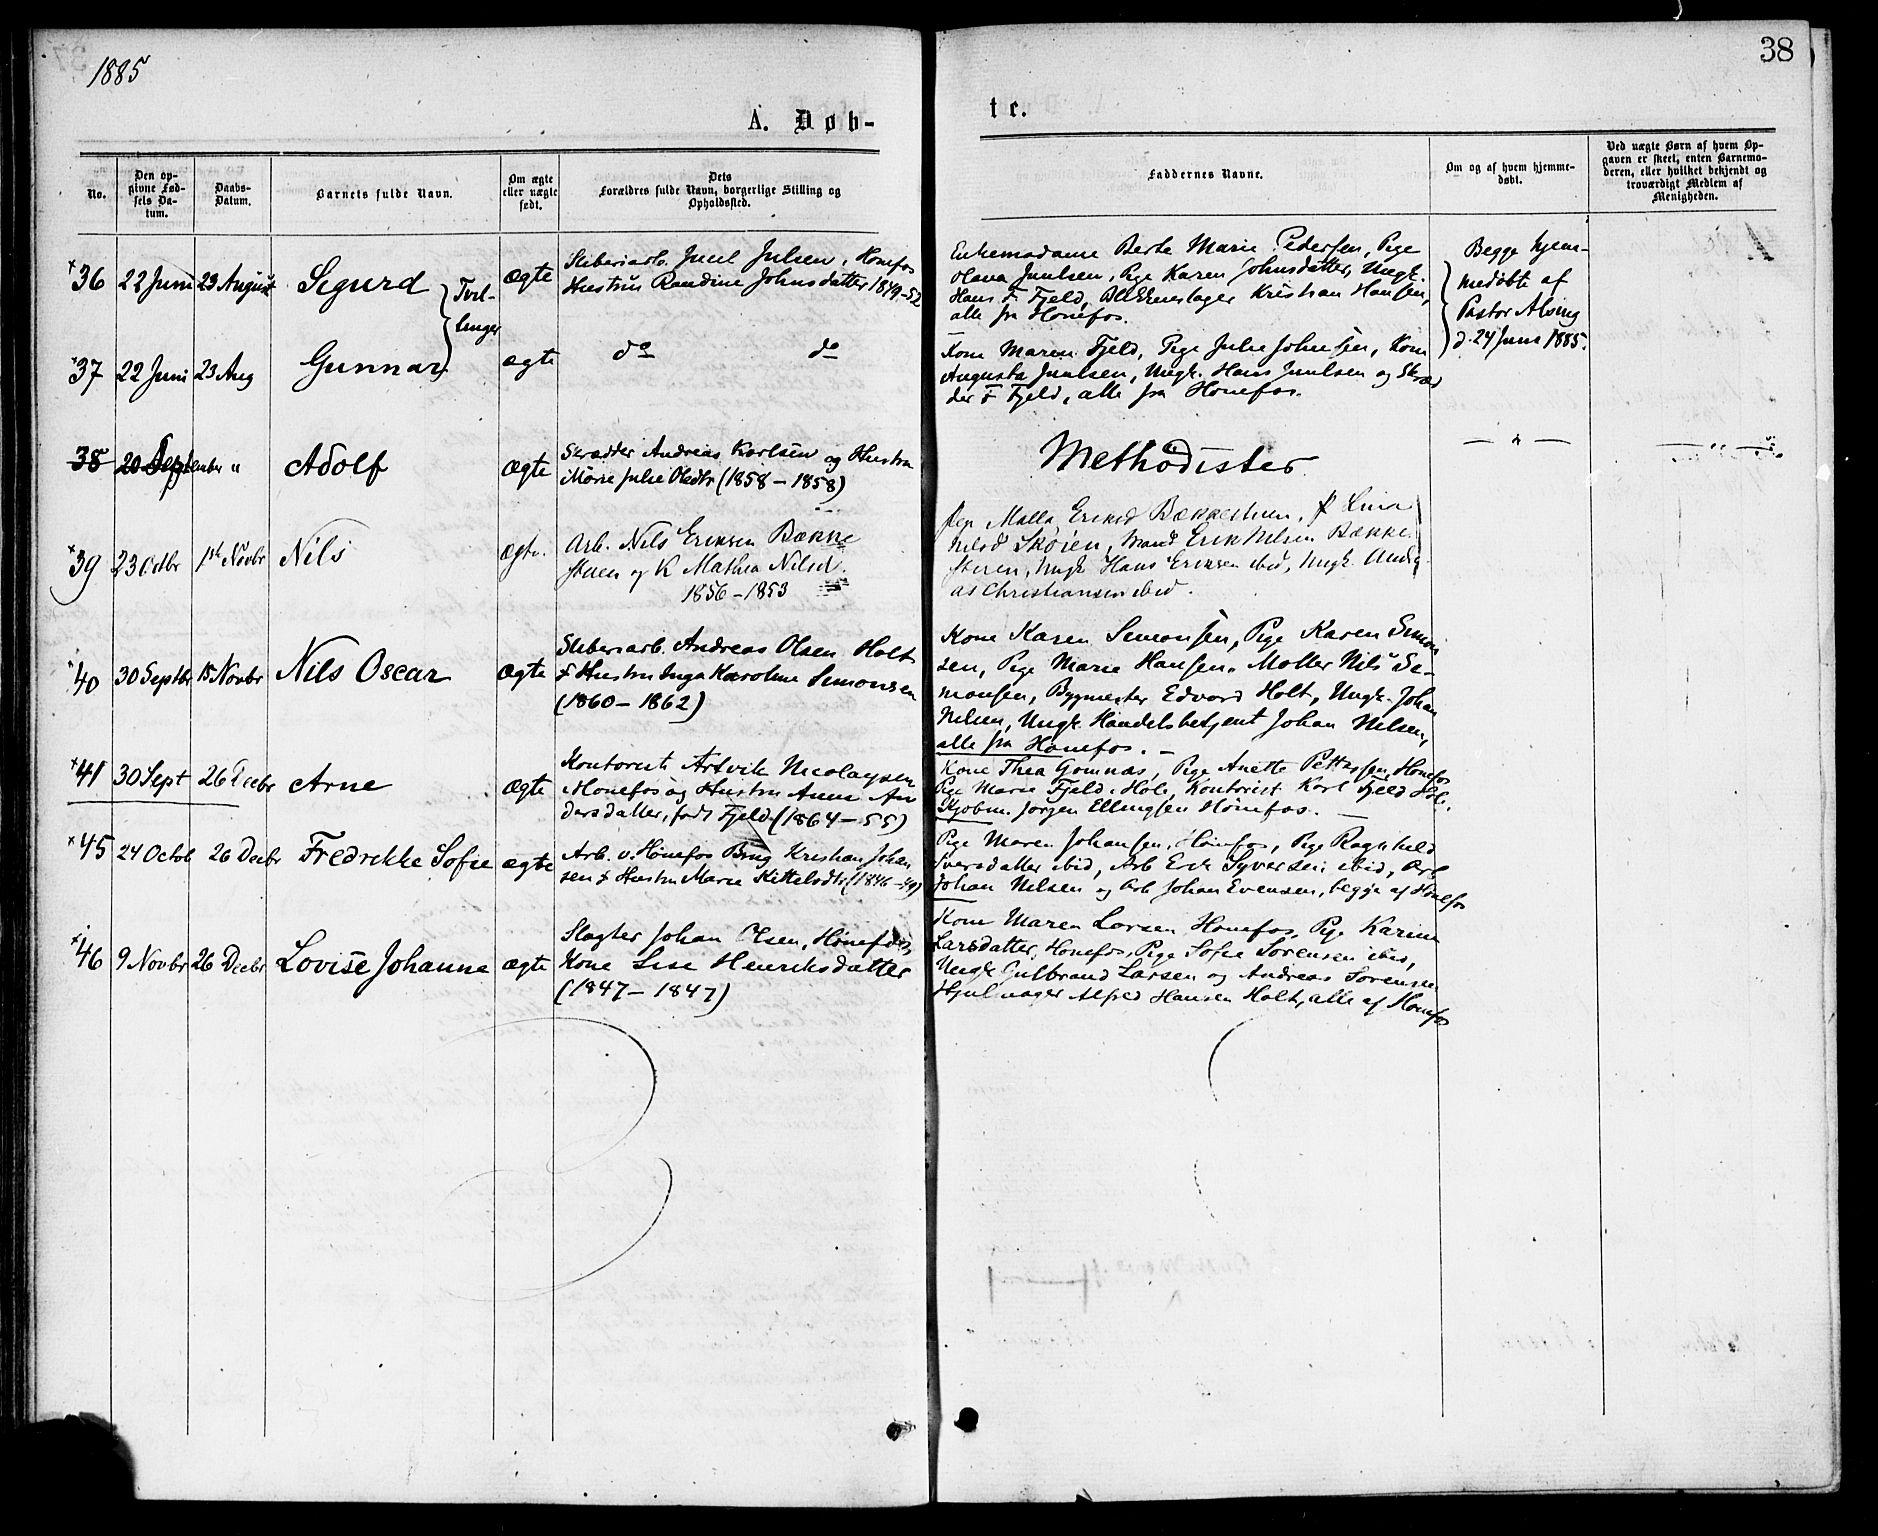 1885
38
A. Døb-
te.
No.
Den op-
givne Fød-
sels Da-
tum.
Daabs-
Datum.
Barnets fulde Navn.
Om ægte
eller uægte
født.
Dets
Forældres fulde Navn, borgerlige Stilling og
Opholdssted.
Faddernes Navne.
Om og af hvem hjemme-
døbt.
Ved uægte Børn af hvem Op-
gaven er skeet, enten Barnemo-
deren, eller hvilket bekjendt og
troværdigt Medlem af
Menigheden.
36 22 Juni 23 August Sigurd Tvil-
linger
ægte
Sliberiarb. Juul Julsen, Hønefos
Hustru Randine Johnsdatter 1849-52
Enkemadame Berte Marie Pedersen, Pige
Olava Juulsen, Pige Karen Johnsdatter, Ungk.
Hans F. Fjeld, Blikkenslager Kristian Hansen,
alle fra Hønefos.
Begge hjem-
medøbte af
Pastor Alsing
d. 24 Juni 1885.
37 22 Juni 23 Aug Gunnar ægte do do
Kone Maren Fjeld, Pige Julie Johnsen, Kone
Augusta Juulsen, Ungk. Hans Juulsen og Skræd
der F Fjeld, alle fra Hønefos.
38 20 September " Adolf ægte
Skrædder Andreas Karlsen og Hustru
Marie Julie Olsdtr (1858 - 1858)
Methodister
— " —
— " —
39 23 Octbr 1ste Novbr Nils ægte.
Arb. Nils Eriksen Bække
stuen og K Mathea Nilsd.
1856 - 1853
Malla Eriksd Bækkestuen, P Lina
Nilsd Skøien, Mand Erik Nilsen Bække
stuen, Ungk Hans Eriksen ibid, Ungk. Andre
as Christiansen ibid.
40 30 Septbr 15 Novbr Nils Oscar ægte
Sliberiarb. Andreas Olsen Holt
& Hustru Inga Karoline Simonsen
(1860 - 1862)
Kone Karen Simonsen, Pige Karen Simon
sen, Pige Marie Hansen, Møller Nils Si-
monsen, Bygmester Edvard Holt, Ungk. Johan
Nilsen, Ungk. Handelsbetjent Johan Nilsen,
alle fra Hønefos. -
41 30 Sept 26 Decbr Arne ægte
Kontorist Artvik Nicolaysen
Hønefos og Hustru Anna An
dersdatter, født Fjeld (1864 - 55)
Kone Thea Gomnæs, Pige Anette Pettersen Hønefos
Pige Marie Fjeld Hole, Kontorist Karl Fjeld Hole.
Kjøbm. Jørgen Ellingsen Hønefos. -
45 24 Octob 26 Decbr Fredrikke Sofie ægte
Arb. v. Hønefos Brug Kristian Johan
sen & Hustru Marie Kittelsdtr (1846 - 49)
Pige Maren Johansen, Hønefos, Pige Ragnhild
Iversdatter ibid, Arb Erik Syversen ibid, Arb
Johan Nilsen og Arb Johan Evensen, begge af Hønefos
46 9 Novbr 26 Decbr Lovise Johanne ægte
Slagter Johan Olsen, Hønefos,
Kone Lise Henriksdatter
(1847 - 1847)
Kone Maren Larsen Hønefos, Pige Karine
Larsdatter, Hønefos, Pige Sofie Sørensen ibid,
Ungk Gulbrand Larsen og Andreas Sørensen
Hjulmager Alfred Hansen Holt, alle af Hønefos